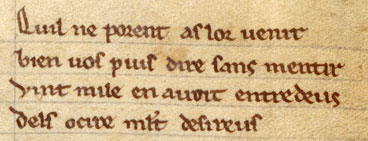 Quil ne porent as lor venir
bien uos puis dire sans mentir
vint mile en auoit entredeus
dels ocire mlt desireus